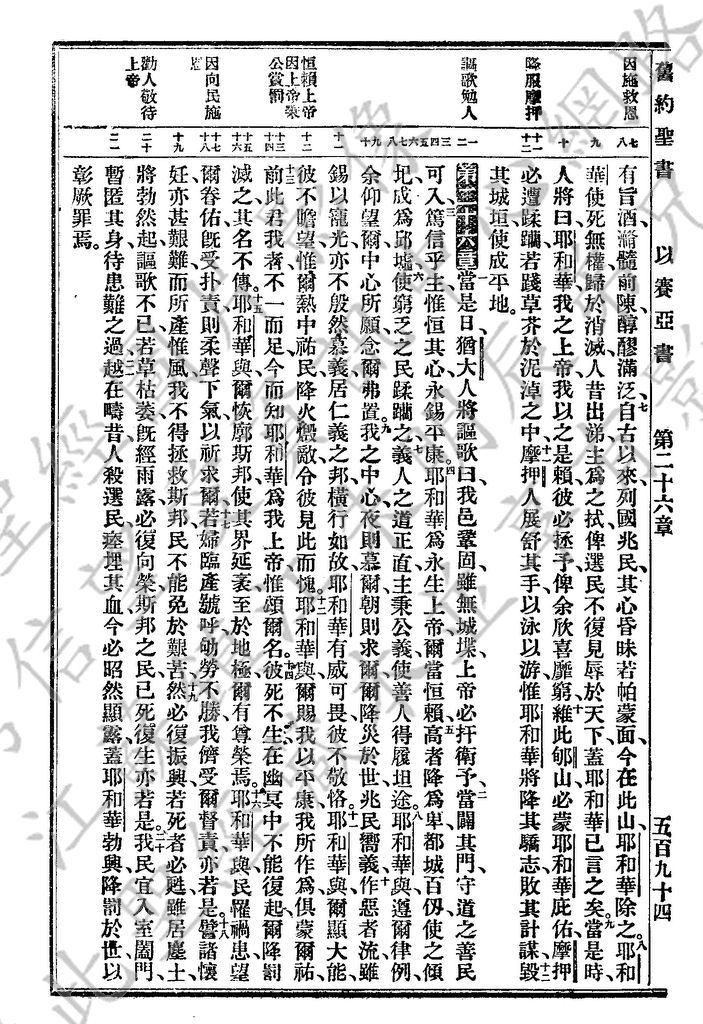 舊約聖書 以賽亞書 第二十六章 五百九十四
因施救恩
降服摩押
謳歌勉人
恒賴上帝
因上帝秉
公賞罰
因向民施
恩
勸人敬待
上帝
有旨酒滫髓前陳醇醪滿泛自古以來列國兆民其心昏昧若帕蒙面今在此山耶和華除之耶和
華使死無權歸於消滅人昔出涕主為之拭俾選民不復見辱於天下蓋耶和華已言之矣當是時
人將曰耶和華我之上帝我以之是賴彼必拯予俾余欣喜靡窮維此郇山必蒙耶和華庇佑摩押
必遭蹂躪若踐草芥於泥淖之中摩押人展舒其手以泳以游惟耶和華將降其驕志敗其計謀毀
其城垣使成平地。
第二十六章當是日猶大人將謳歌曰我邑鞏固雖無城堞上帝必扞衛予當闢其門守道之善民
可入篤信平生惟恒其心永錫平康耶和華為永生上帝爾當恒賴高者降為卑都城百仞使之傾
圮成為邱墟使窮乏之民蹂躪之義人之道正直主秉公義使善人得履坦途耶和華與遵爾律例
余仰望爾中心所願念爾弗置我之中心夜則慕爾朝則求爾爾降災於世兆民嚮義作惡者流雖
錫以寵光亦不殷然慕義居仁義之邦橫行如故耶和華有威可畏彼不敬恪耶和華與爾顯大能
彼不瞻望惟爾熱中祐民降火燬敵令彼見此而愧耶和華與爾賜我以平康我所作為俱蒙爾祐
前此君我者不一而足今而知耶和華為我上帝惟頌爾名彼死不生在幽冥中不能復起爾降罰
滅之其名不傳耶和華與爾恢廓斯邦使其界延袤至於地極爾有尊榮焉耶和華與民罹禍患望
爾眷佑旣受扑責則柔聲下氣以祈求爾若婦臨產號呼劬勞不勝我儕受爾督責亦若是譬諸懷
妊亦甚艱難而所產惟風我不得拯救斯邦民不能免於艱苦然必復振興若死者必甦雖居塵土
將勃然起謳歌不已若草枯萎旣經雨露必復向榮斯邦之民已死復生亦若是我民宜入室闔門
暫匿其身待患難之過越在疇昔人殺選民瘞埋其血今必昭然顯露蓋耶和華勃興降罰於世以
彰厥罪焉。